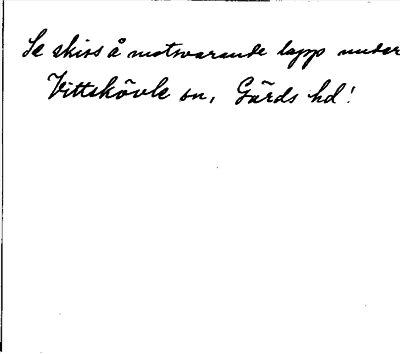 Se skiss å motsvarande lapp under
Vittskövle sn, Gärds hd!